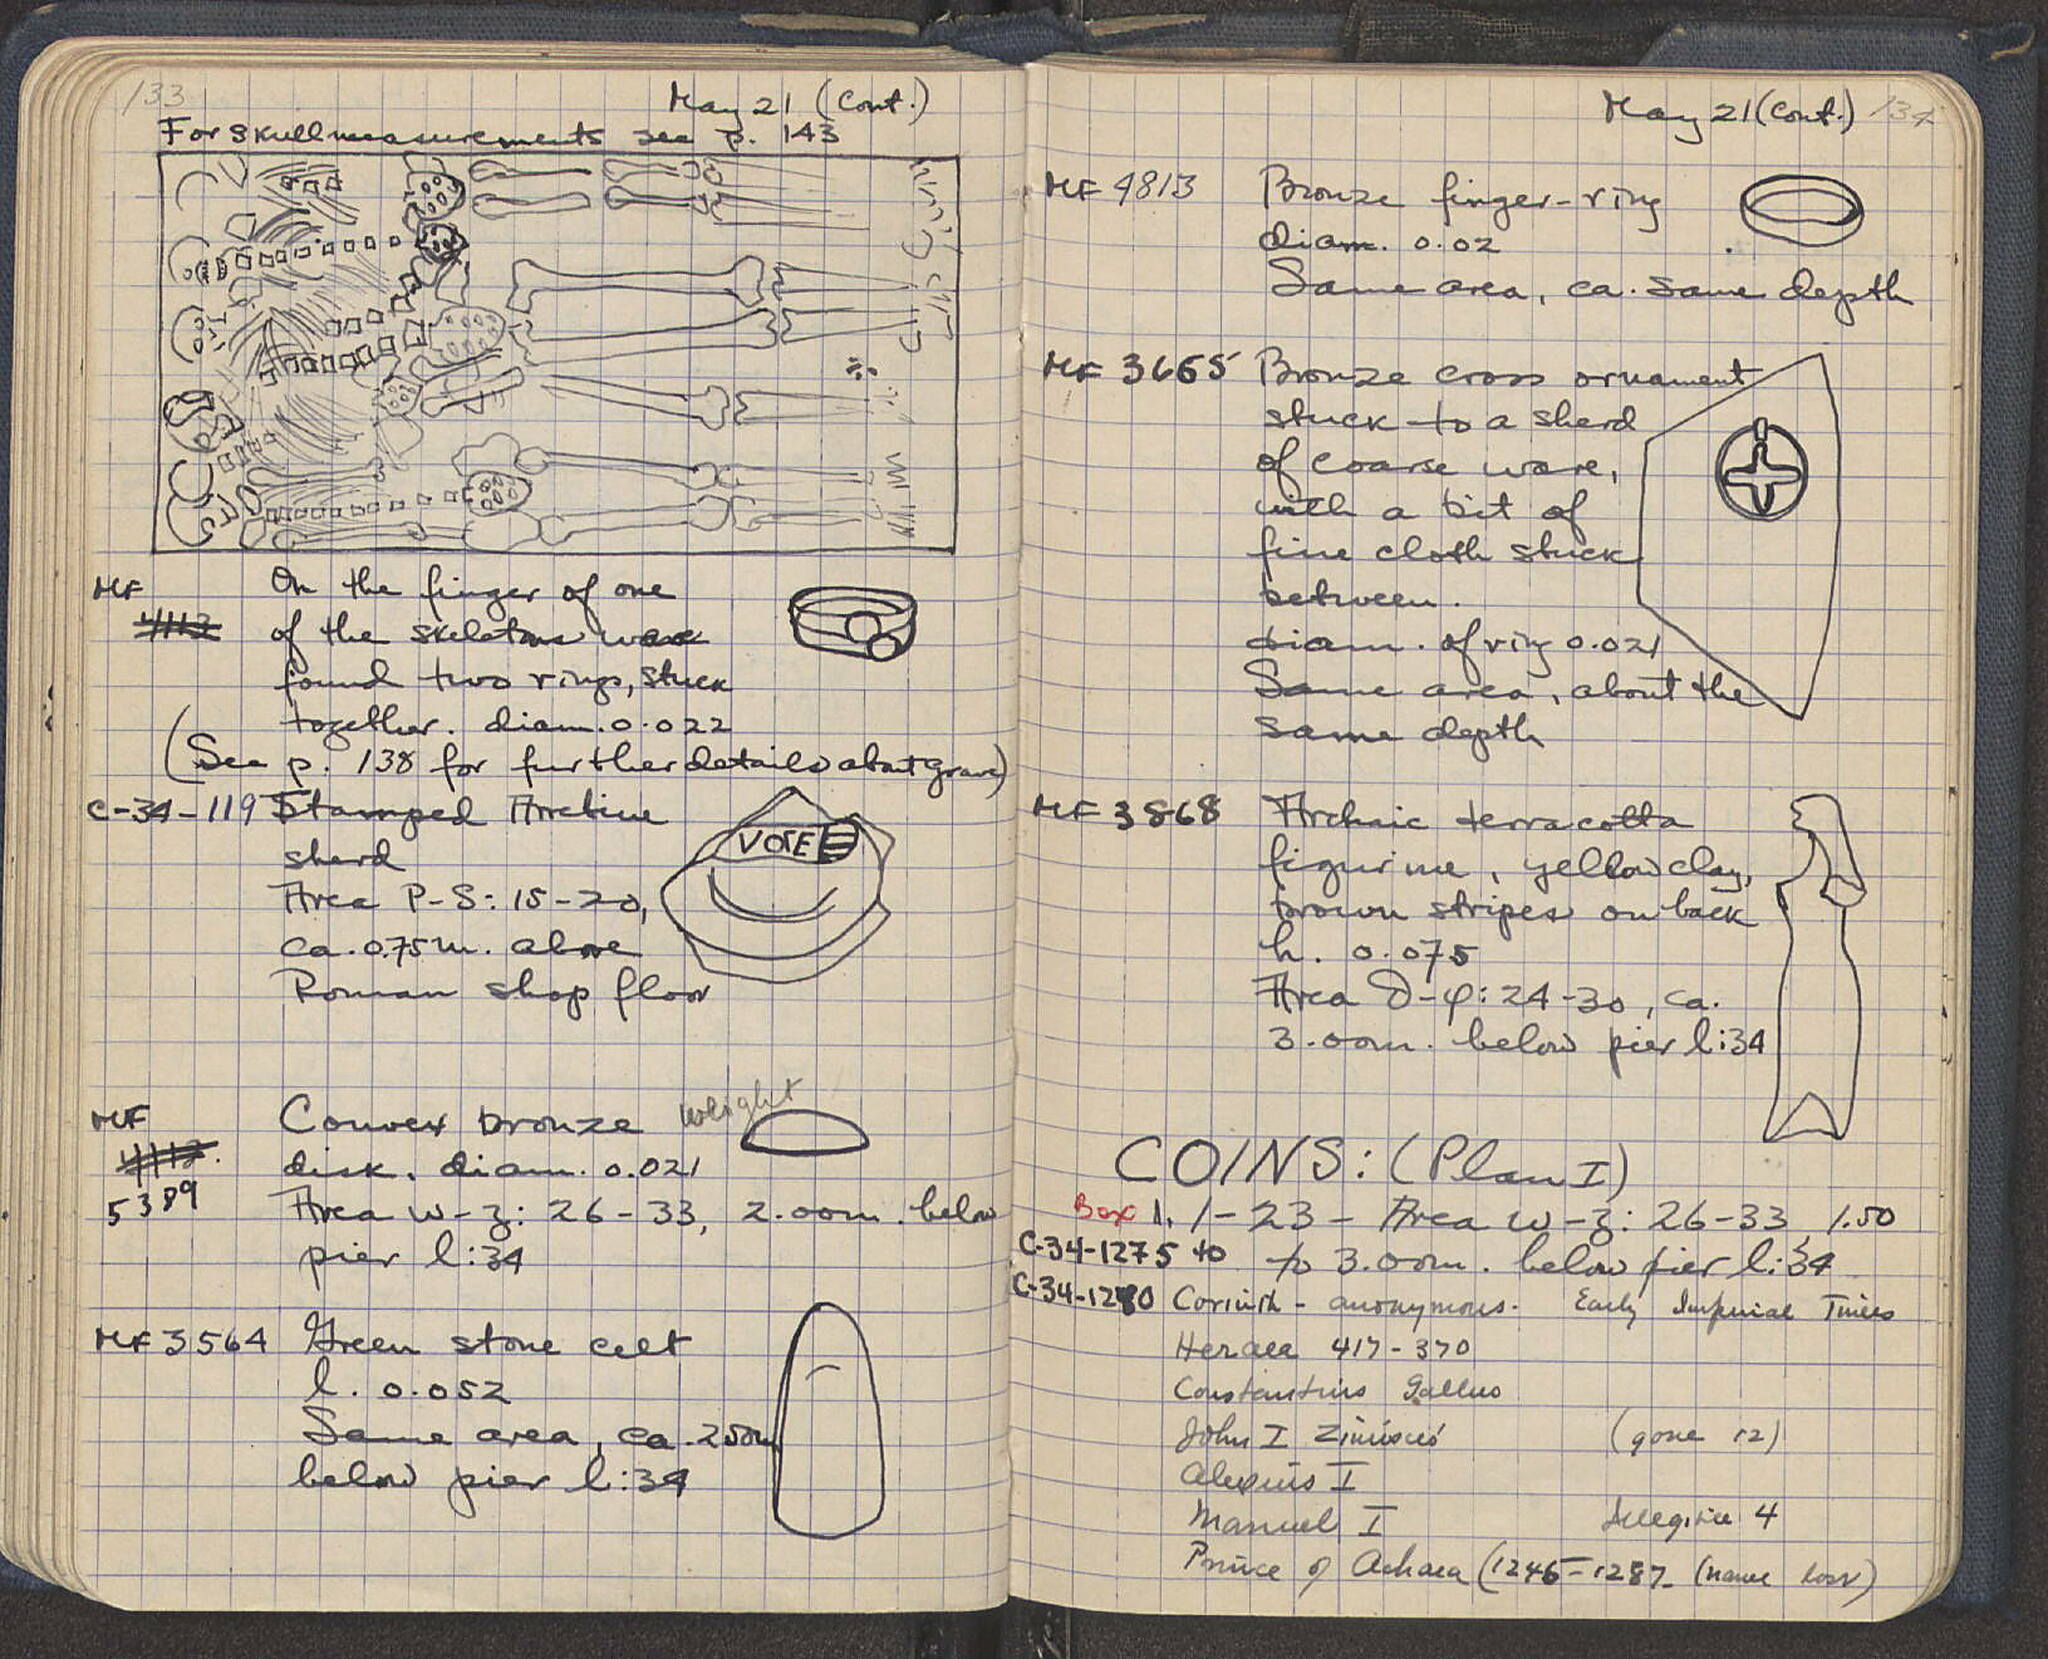 133
May 21 (Cont.)
For skull measurements see p. 143
MF On the finger of one
4113 of the skeletons were
found two rings, stuck
together. diam. 0.022
(See p. 138 for further details about grave)
C-34-119 Stamped Arretine
sherd
VOTE
Area P-S: 15-20,
ca. 0.75m. above
Roman shop floor
MF Convex bronze weight
4112. disk. diam. 0.021
5389 Area w-z: 26-33, 2.00m. below
pier l:34
MF 3564 Green stone celt
l. 0.052
Same area, ca. 2.50m
below pier l:34
May 21 (Cont.) 134
MF 4813 Bronze finger-ring
diam. 0.02
Same area, ca. same depth
MF 3665 Bronze cross ornament
stuck to a sherd
of coarse ware,
with a bit of
fine cloth stuck
between.
diam. of ring 0.021
Same area, about the
same depth
MF 3868 Archaic terracotta
figurine, yellow clay,
brown stripes on back
h. 0.075
Area -φ: 24-30, ca.
3.00m. below pier l:34
COINS: (Plan I)
Box 1. 1-23 - Area w-z: 26-33, 1.50
C-34-1275 to to 3.00m. below pier l:34
C-34-1280 Corinth - anonymous - Early Imperial Times
Heraea 417-370
Constantius Gallus
John I Zimisces (gone 12)
Alexius I
Manuel I Illegible 4
Prince of Achaea (1246-1287 (name lost)